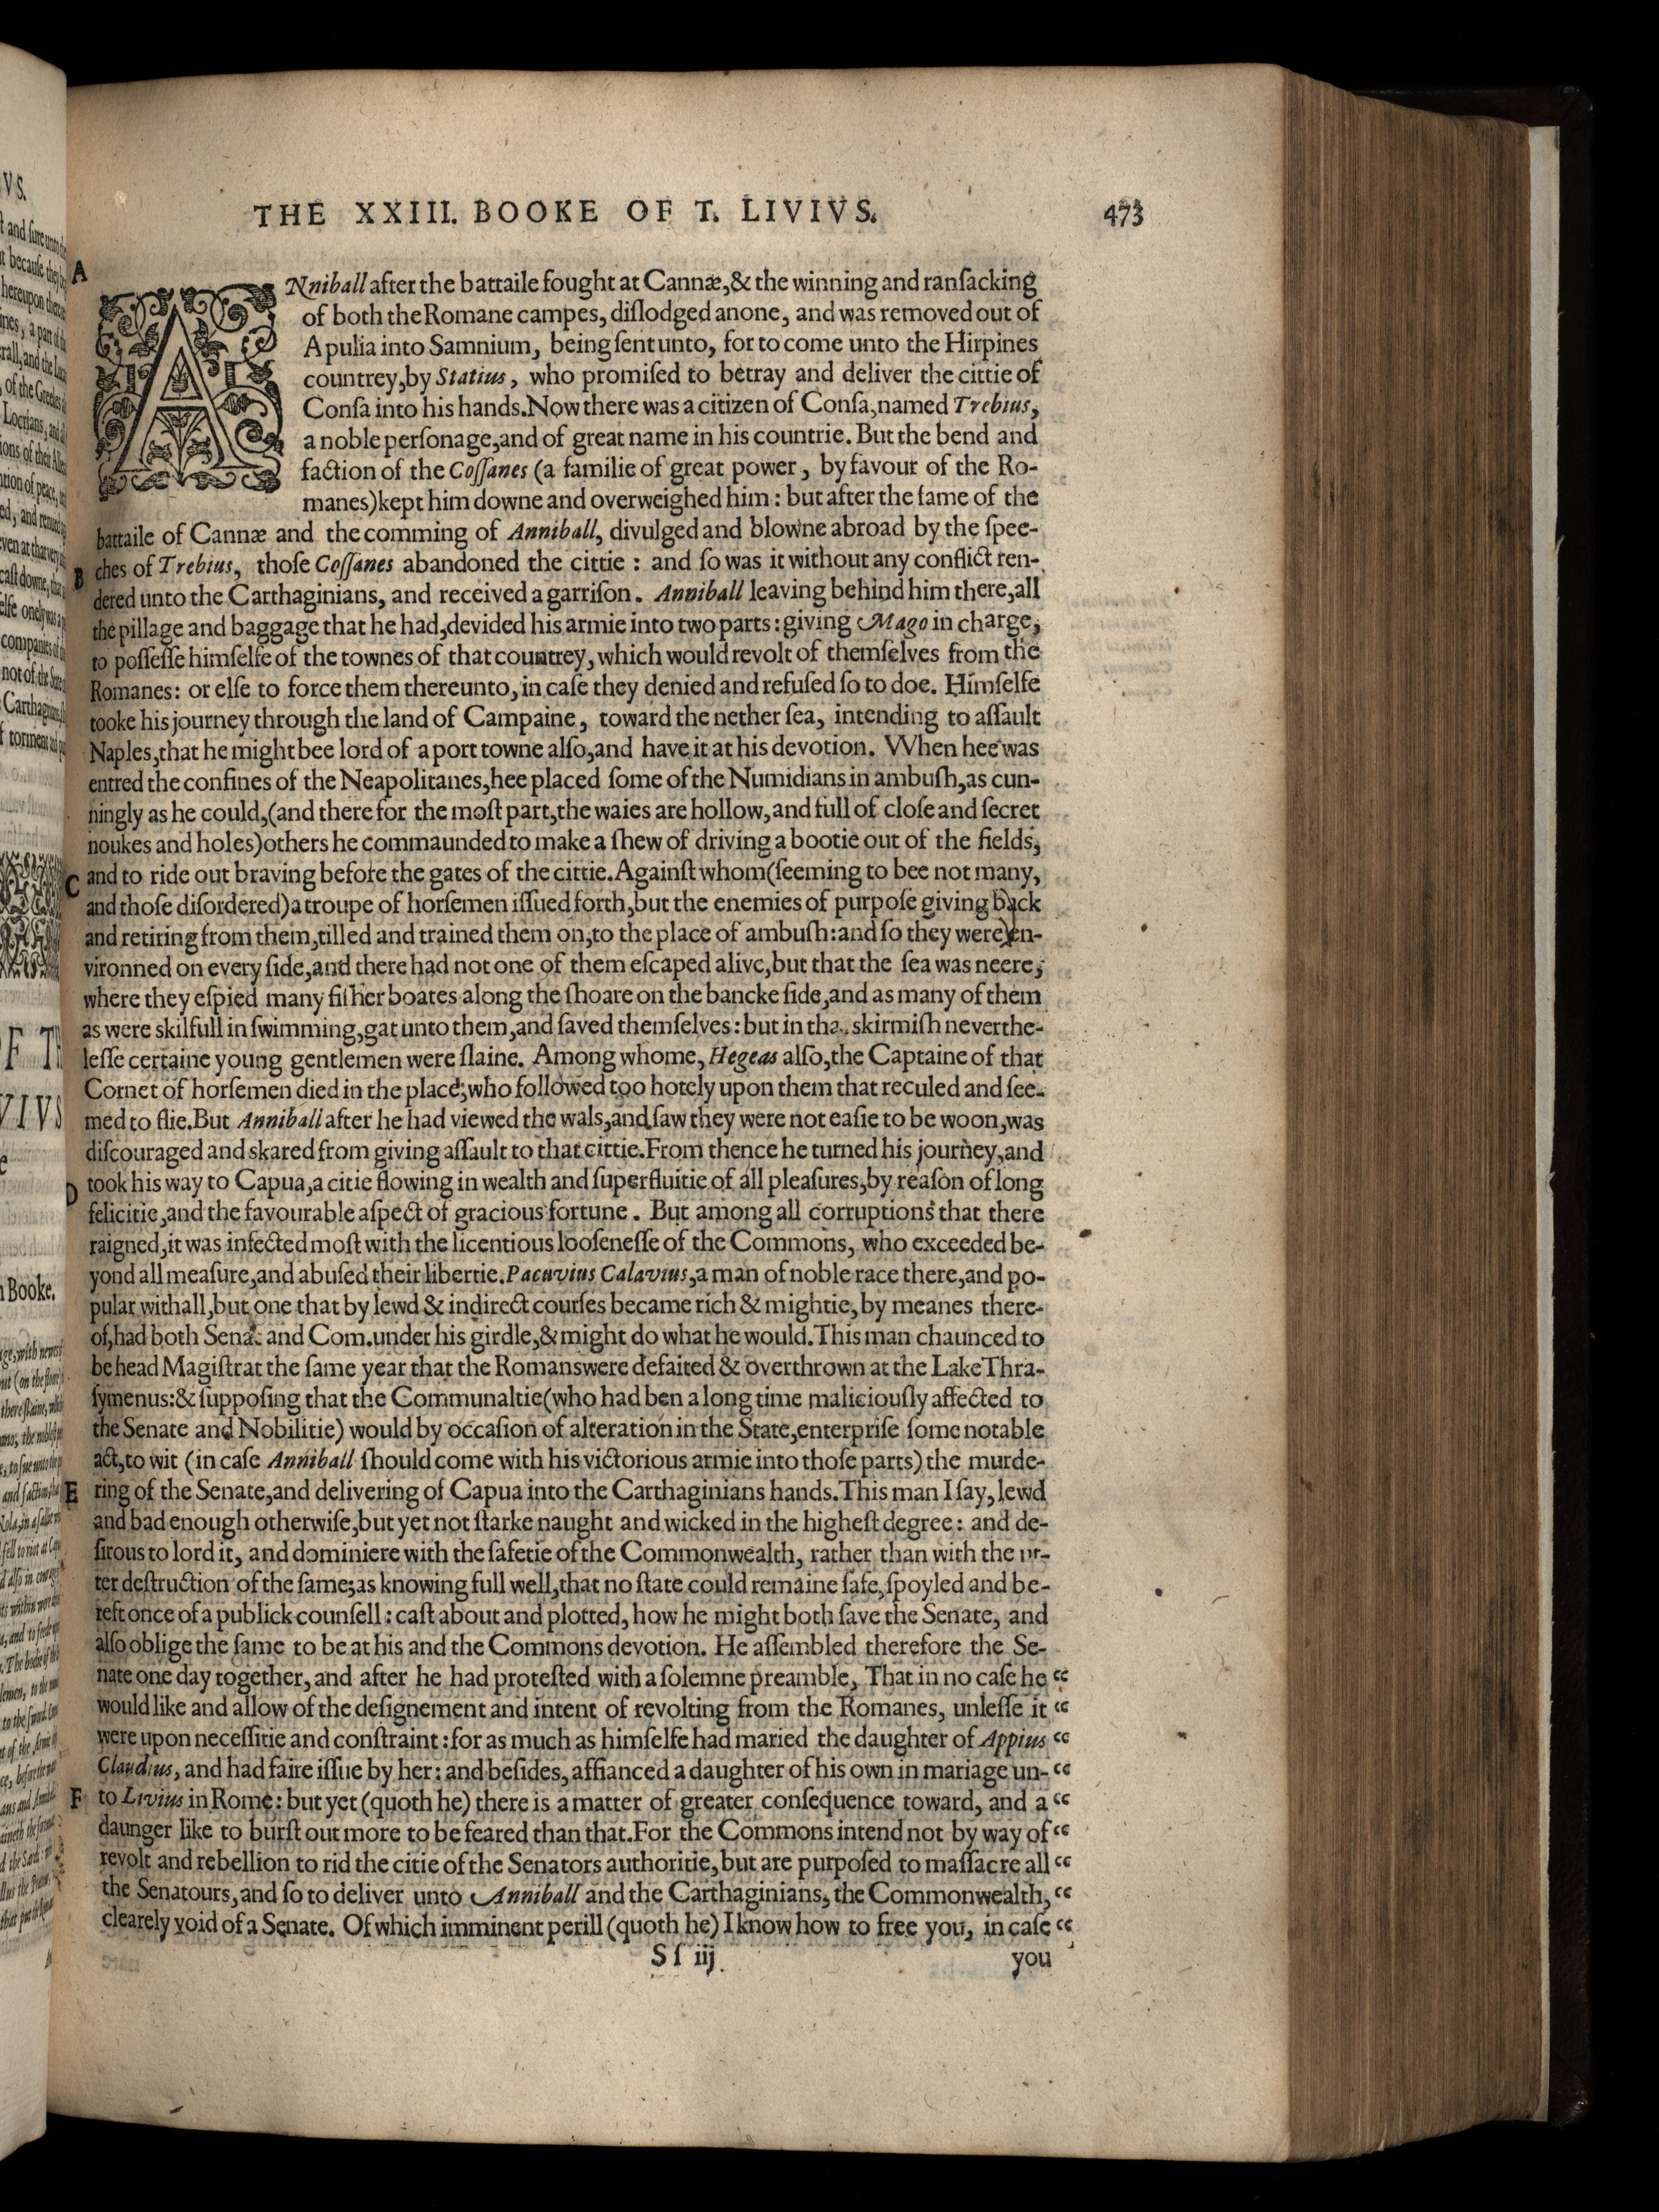 THE XXIII. BOOKE OF T. LIVIVS.
473
A
ANniball after the battaile fought at Cannæ, & the winning and ranſacking
of both the Romane campes, diſlodged anone, and was removed out of
Apulia into Samnium, being ſent unto, for to come unto the Hirpines
countrey, by Statius, who promiſed to betray and deliver the cittie of
Conſa into his hands. Now there was a citizen of Conſa, named Trebius,
a noble perſonage, and of great name in his countrie. But the bend and
faction of the Coſſanes (a familie of great power, by favour of the Ro-
manes) kept him downe and overweighed him: but after the fame of the
battaile of Cannæ and the comming of Anniball, divulged and blowne abroad by the ſpee-
B
ches of Trebius, thoſe Coſſanes abandoned the cittie: and ſo was it without any conflict ren-
dered unto the Carthaginians, and received a garriſon. Anniball leaving behind him there, all
the pillage and baggage that he had, devided his armie into two parts: giving Mago in charge,
to poſſeſſe himſelfe of the townes of that countrey, which would revolt of themſelves from the
Romanes: or elſe to force them thereunto, in caſe they denied and refuſed ſo to doe. Himſelfe
tooke his journey through the land of Campaine, toward the nether ſea, intending to aſſault
Naples, that he might bee lord of a port towne alſo, and have it at his devotion. When hee was
entred the confines of the Neapolitanes, hee placed ſome of the Numidians in ambuſh, as cun-
ningly as he could, (and there for the moſt part, the waies are hollow, and full of cloſe and ſecret
noukes and holes) others he commaunded to make a ſhew of driving a bootie out of the fields,
C
and to ride out braving before the gates of the cittie. Againſt whom (ſeeming to bee not many,
and thoſe diſordered) a troupe of horſemen iſſued forth, but the enemies of purpoſe giving back
and retiring from them, tilled and trained them on, to the place of ambuſh: and ſo they were en-
vironned on every ſide, and there had not one of them eſcaped alive, but that the ſea was neere,
where they eſpied many fiſher boates along the ſhoare on the bancke ſide, and as many of them
as were skilfull in ſwimming, gat unto them, and ſaved themſelves: but in that skirmiſh neverthe-
leſſe certaine young gentlemen were ſlaine. Among whome, Hegeas alſo, the Captaine of that
Cornet of horſemen died in the place, who followed too hotely upon them that reculed and ſee-
med to flie. But Anniball after he had viewed the wals, and ſaw they were not eaſie to be woon, was
diſcouraged and skared from giving aſſault to that cittie. From thence he turned his journey, and
D
took his way to Capua, a citie flowing in wealth and ſuperfluitie of all pleaſures, by reaſon of long
felicitie, and the favourable aſpect of gracious fortune. But among all corruptions that there
raigned, it was infected moſt with the licentious looſeneſſe of the Commons, who exceeded be-
yond all meaſure, and abuſed their libertie. Pacuvius Calavius, a man of noble race there, and po-
pular withall, but one that by lewd & indirect courſes became rich & mightie, by meanes there-
of, had both Senat and Com. under his girdle, & might do what he would. This man chaunced to
be head Magiſtrat the ſame year that the Romans were defaited & overthrown at the Lake Thra-
ſymenus: & ſuppoſing that the Communaltie (who had ben a long time maliciouſly affected to
the Senate and Nobilitie) would by occaſion of alteration in the State, enterpriſe ſome notable
act, to wit (in caſe Anniball ſhould come with his victorious armie into thoſe parts) the murde-
E
ring of the Senate, and delivering of Capua into the Carthaginians hands. This man I ſay, lewd
and bad enough otherwiſe, but yet not ſtarke naught and wicked in the higheſt degree: and de-
ſirous to lord it, and dominiere with the ſafetie of the Commonwealth, rather than with the ut-
ter deſtruction of the ſame; as knowing full well, that no ſtate could remaine ſafe, ſpoyled and be-
reft once of a publick counſell: caſt about and plotted, how he might both ſave the Senate, and
alſo oblige the ſame to be at his and the Commons devotion. He aſſembled therefore the Se-
nate one day together, and after he had proteſted with a ſolemne preamble, That in no caſe he “
would like and allow of the deſignement and intent of revolting from the Romanes, unleſſe it “
were upon neceſſitie and conſtraint: for as much as himſelfe had maried the daughter of Appius “
Claudius, and had faire iſſue by her: and beſides, affianced a daughter of his own in mariage un- “
F
to Livius in Rome: but yet (quoth he) there is a matter of greater conſequence toward, and a “
daunger like to burſt out more to be feared than that. For the Commons intend not by way of “
revolt and rebellion to rid the citie of the Senators authoritie, but are purpoſed to maſſacre all “
the Senatours, and ſo to deliver unto Anniball and the Carthaginians, the Commonwealth, “
clearely void of a Senate. Of which imminent perill (quoth he) I know how to free you, in caſe “
Sſ iij
you